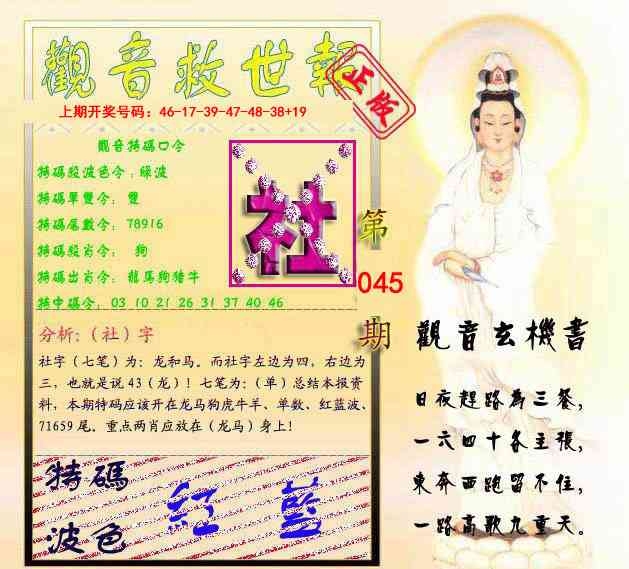 觀音救世報
正版
上期开奖号码：46-17-39-47-48-38+19
觀音特碼口令
特碼殺波色令：綠波
特碼單雙令： 雙
特碼尾數令： 78916
特碼殺肖令： 狗
特碼出肖令： 龍馬狗豬牛
特中碼令： 03 10 21 26 31 37 40 46
社
第
045
期
分析：（社）字
社字（七笔）为：龙和马。而社字左边为四，右边为
三，也就是说 43（龙）！七笔为：（单）总结本报资
料，本期特码应该开在龙马狗虎牛羊、单数、红蓝波、
71659 尾。重点两肖应放在（龙马）身上！
特碼
波色
紅 藍
觀音玄機書
日夜趕路為三餐，
一六四十各主張，
東奔西跑留不住，
一路高歌九重天。